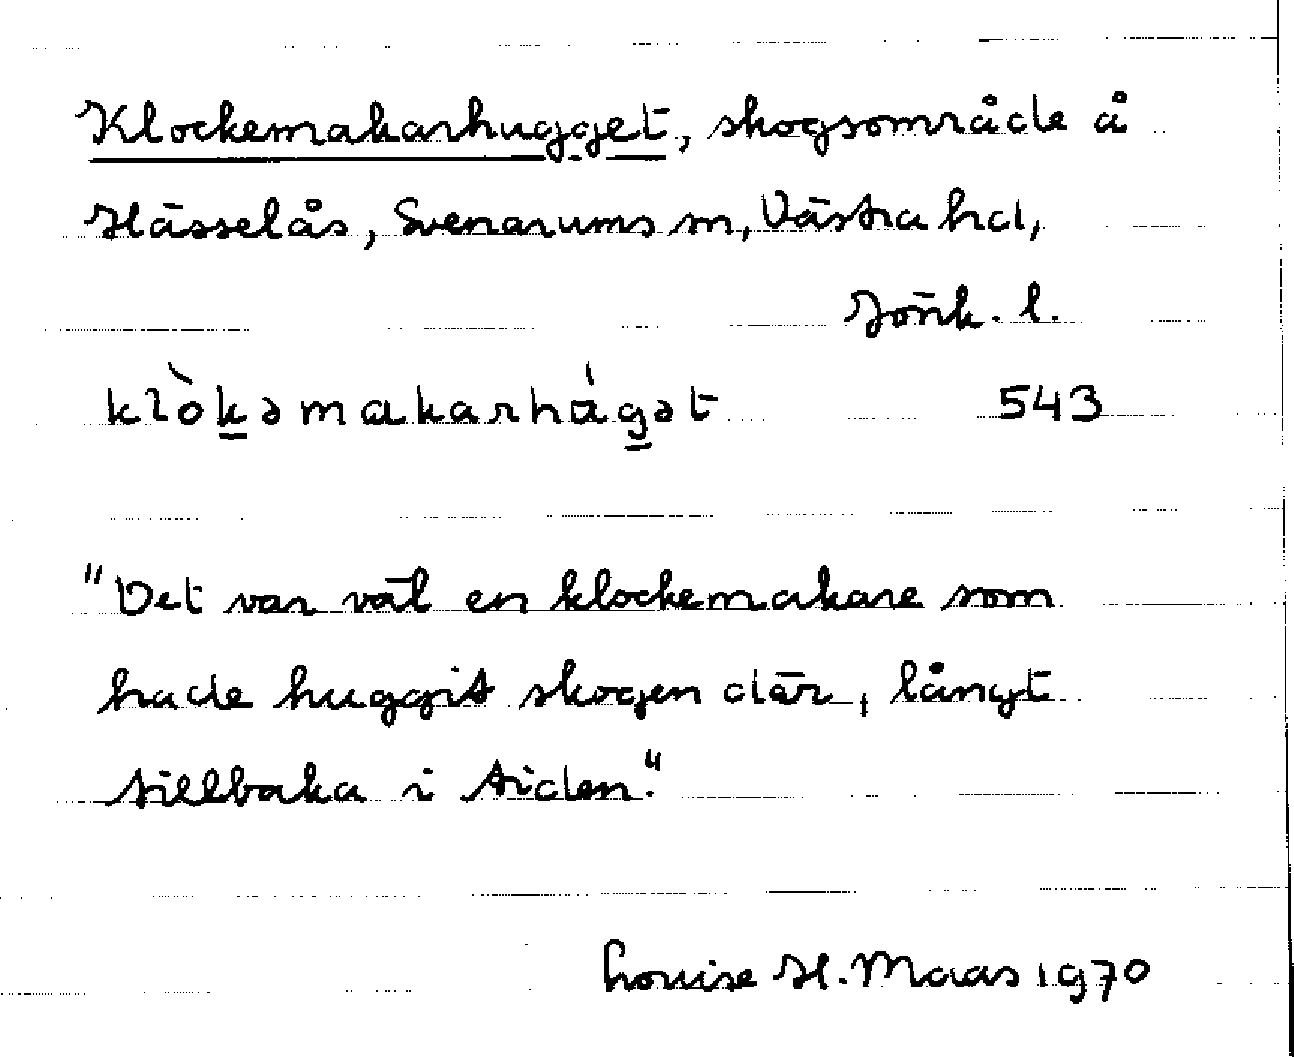 Klockemakarhugget, skogsområde å
Hässelås, Svenarums sn, Västra hd,
Jönk. l.
klòk̲əmakarhág̲ət 543
"Det var väl en klockemakare som
hade huggit skogen där, långt
tillbaka i tiden."
Louise H. Maas 1970